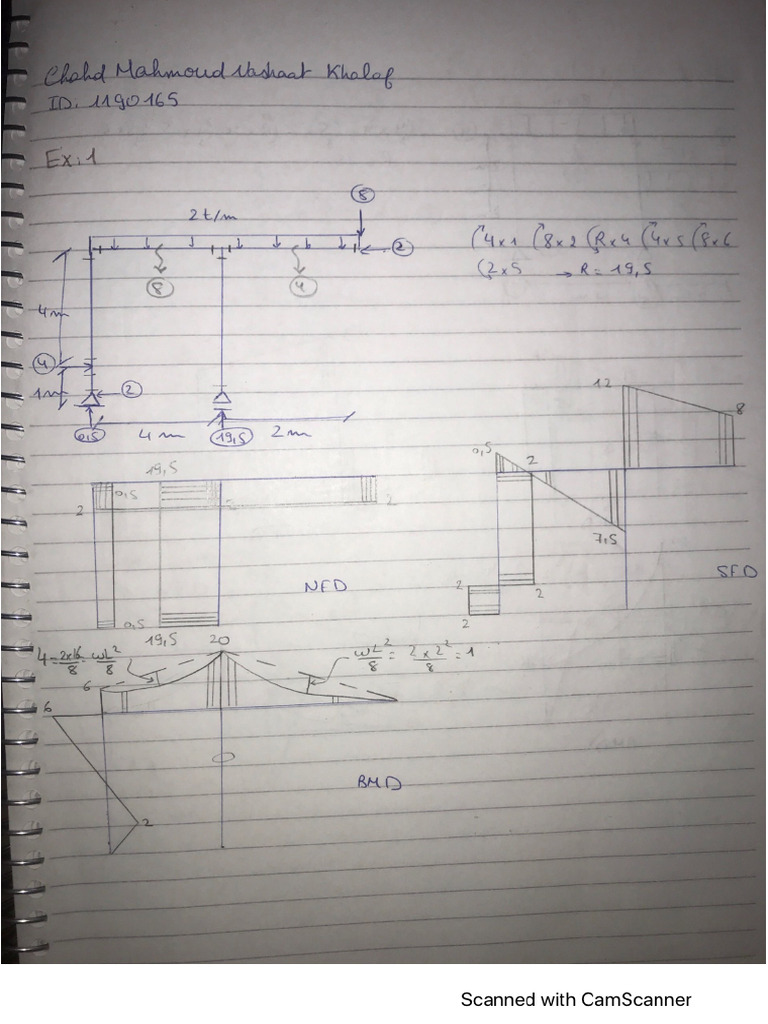 Chahd Mahmoud Nashaat Khalaf
ID. 1190165
Ex:1
8
2t/m
2
8
4
4m
4
1m
2
0,5
4m
19,5
2m
4x1 8x2 Rx4 4x5 8x6
2x5 → R = 19,5
12
8
0,5
2
7,5
2
2
2
SFD
19,5
0,5
2
2
0,5
19,5
NFD
20
4 = 2x16/8 = wL²/8
wL²/8 = 2x2²/8 = 1
6
6
2
BMD
Scanned with CamScanner